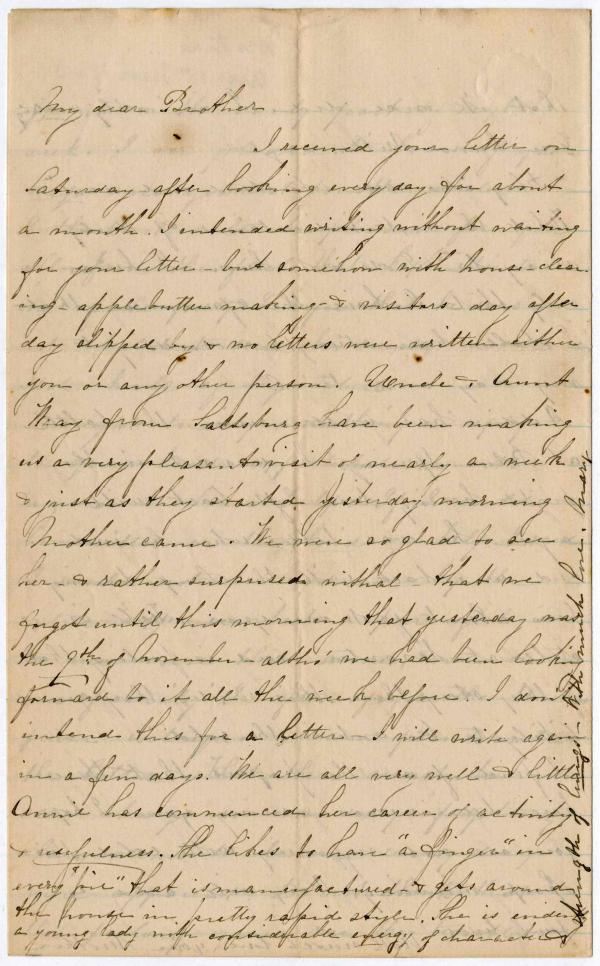 My dear Brother
I received your letter on
Saturday after looking every day for about
a month. I intended writing without waiting
for your letter - but somehow with house-clean
ing - apple butter making & visitors day after
day slipped by & no letters were written either
you or any other person. Uncle & Aunt
May from Saltsburg have been making
us a very pleasant visit of nearly a week
& just as they started yesterday morning
Mother came. We were so glad to see
her - & rather surprised withal - that we
forgot until this morning that yesterday was
the 9th of November - altho' we had been looking
forward to it all the week before. I don't
intend this for a letter - I will write again
in a few days. We are all very well & little
Annie has commenced her career of activity
& usefulness. She likes to have "a finger" in
every "pie" that is manufactured - & gets around
the house in pretty rapid style. She is evidently
a young lady with considerable energy of character &
strength of lungs. With much love. Mary